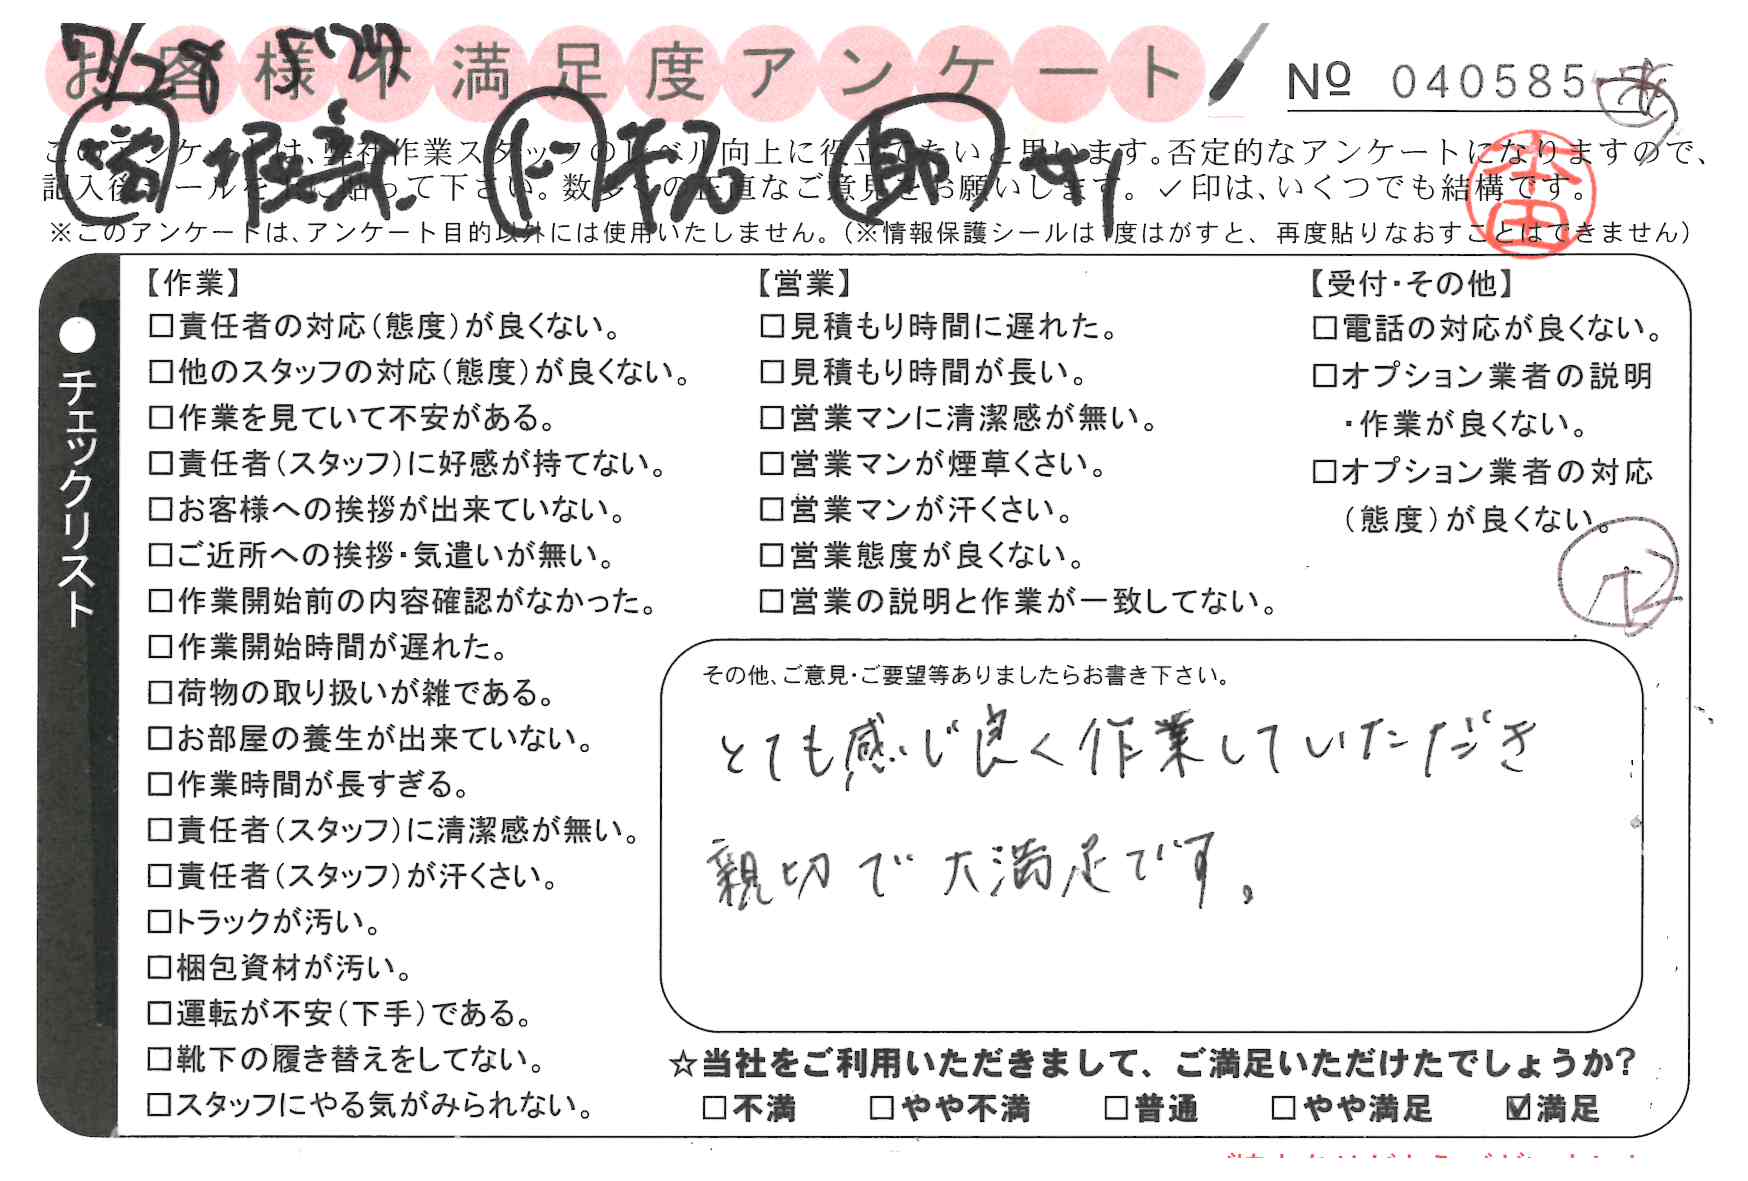 7/28
お客様不満足度アンケート
№ 040585
このアンケートは、弊社作業スタッフのレベル向上に役立てたいと思います。否定的なアンケートになりますので、
記入後シールを上に貼って下さい。数多くの正直なご意見をお願いします。✓印は、いくつでも結構です。
本田
※このアンケートは、アンケート目的以外には使用いたしません。（※情報保護シールは1度はがすと、再度貼りなおすことはできません）
●チェックリスト
【作業】
□責任者の対応（態度）が良くない。
□他のスタッフの対応（態度）が良くない。
□作業を見ていて不安がある。
□責任者（スタッフ）に好感が持てない。
□お客様への挨拶が出来ていない。
□ご近所への挨拶・気遣いが無い。
□作業開始前の内容確認がなかった。
□作業開始時間が遅れた。
□荷物の取り扱いが雑である。
□お部屋の養生が出来ていない。
□作業時間が長すぎる。
□責任者（スタッフ）に清潔感が無い。
□責任者（スタッフ）が汗くさい。
□トラックが汚い。
□梱包資材が汚い。
□運転が不安（下手）である。
□靴下の履き替えをしてない。
□スタッフにやる気がみられない。
【営業】
□見積もり時間に遅れた。
□見積もり時間が長い。
□営業マンに清潔感が無い。
□営業マンが煙草くさい。
□営業マンが汗くさい。
□営業態度が良くない。
□営業の説明と作業が一致してない。
【受付・その他】
□電話の対応が良くない。
□オプション業者の説明
・作業が良くない。
□オプション業者の対応
（態度）が良くない。
その他、ご意見・ご要望等ありましたらお書き下さい。
とても感じ良く作業していただき
親切で大満足です。
☆当社をご利用いただきまして、ご満足いただけたでしょうか？
□不満 □やや不満 □普通 □やや満足 ☑満足